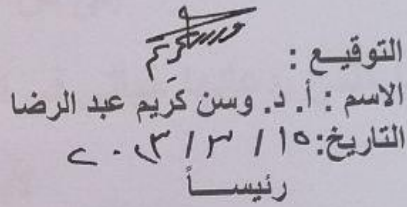 التوقيـع :
الاسم : أ. د. وسن كريم عبد الرضا
التاريخ: ١٥ / ٣ / ٢٠٢٣
رئيســاً